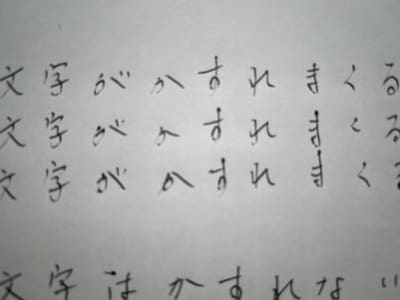 文字がかすれまくる
文字がかすれまくる
文字がかすれまくる
文字はかすれない